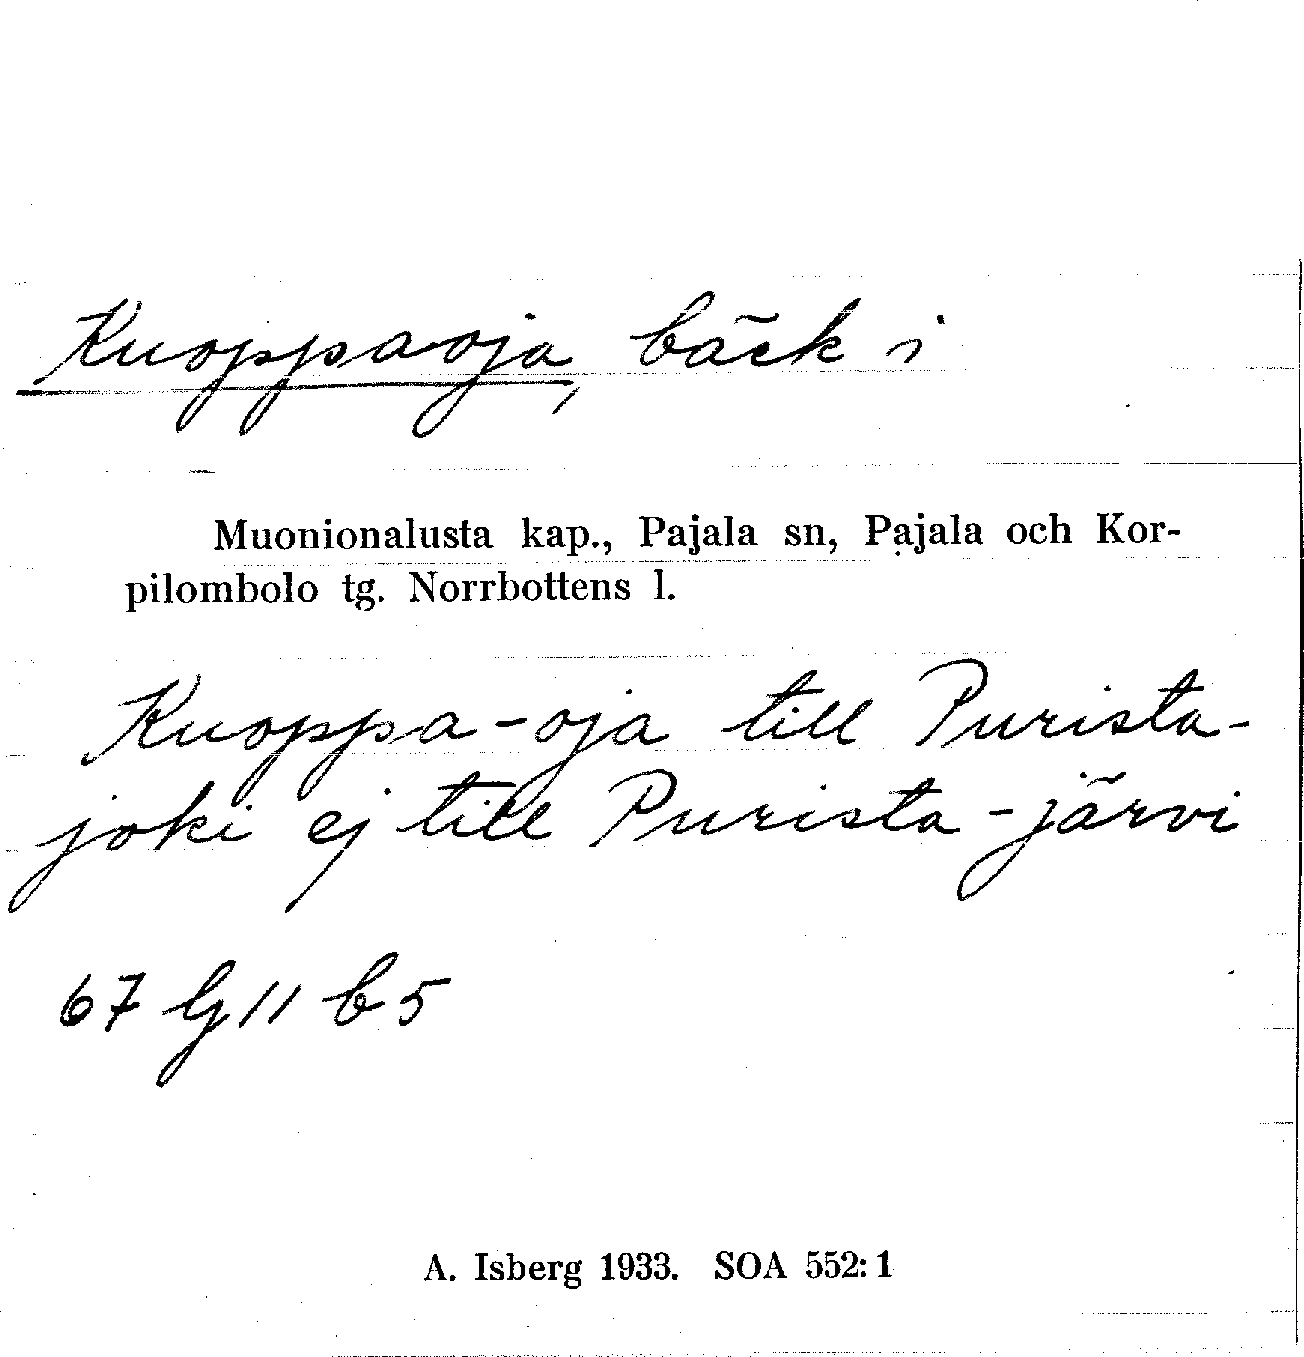 Kuoppaoja, bäck i
Muonionalusta kap., Pajala sn, Pajala och Kor-
pilombolo tg. Norrbottens l.
Kuoppa-oja till Purista-
joki ej till Purista-järvi
67 G 11 b 5
A. Isberg 1933. SOA 552:1